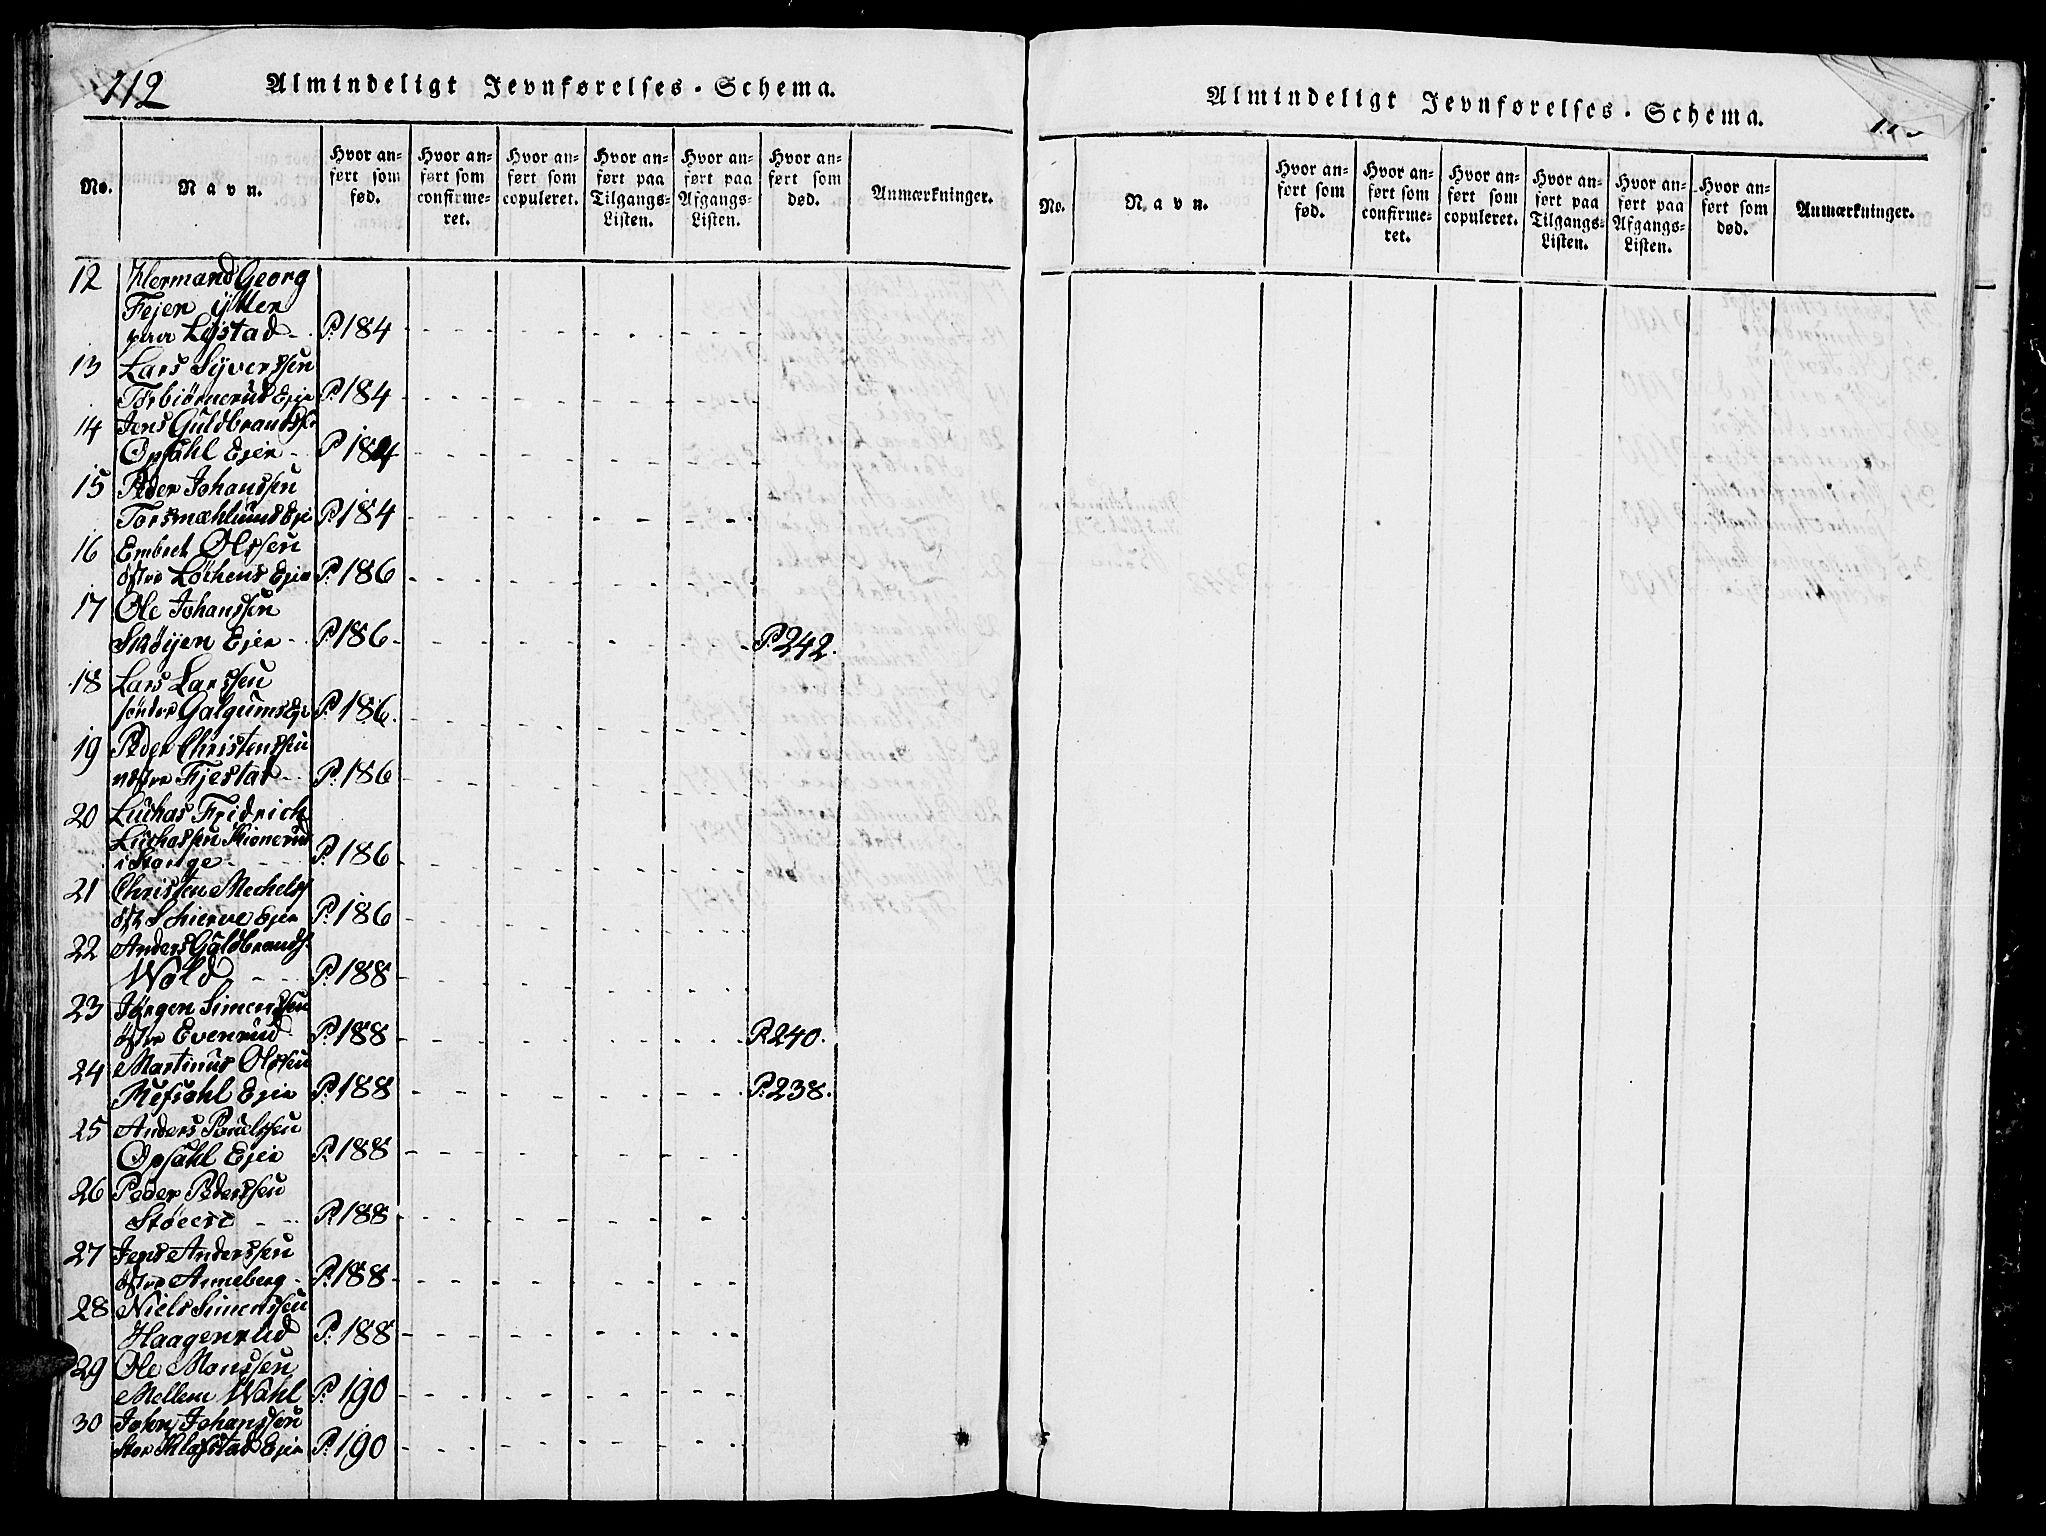 112
Almindeligt Jevnførelses-Schema.
No.
Navn.
Hvor an-
ført som
fød.
Hvor an-
ført som
confirme-
ret.
Hvor an-
ført som
copuleret.
Hvor an-
ført paa
Tilgangs-
Listen.
Hvor an-
ført paa
Afgangs-
Listen.
Hvor an-
ført som
død.
Anmærkninger.
12 Hermand Georg
Fejer
Lystad P. 184
13 Lars Syverssen
Torbiørnerud Ejer P. 184
14 Jens Guldbrands.
Opsahl Ejer P. 184
15 Peder Johanssen
Torsmæhlund Eje P. 184
16 Embret Olssen
østre Løchens Ejer P. 186
17 Ole Johanssen
Skøyen Ejer P. 186 P. 242.
18 Lars Larssen
søndre Galgums Ej P. 186.
19 Peder Christenssen
Fjestad P. 186
20 Luchas Fridrich
Luchassen Kionerud
i Stange P. 186
21 Christen Mechels
østr Schierve Ejer P. 186
22 Anders Guldbrands.
Wold P. 188
23 Jørgen Simenssen
østre Evenrud P. 188 P. 240.
24 Martinus Olssen
Refsahl Ejer P. 188 P. 238.
25 Anders Poulssen
Opsahl Ejer P. 188
26 Peder Pederssen
Støeese P. 188
27 Jens Anderssen
østre Anneberg P. 188
28 Niels Simenssen
Haagenrud P. 188
29 Ole Monssen
Mellem Wahl P. 190
30 John Johanssen
Stor Klafstad Ejer P. 190
Almindeligt Jevnførelses-Schema.
No.
Navn.
Hvor an-
ført som
fød.
Hvor an-
ført som
confirme-
ret.
Hvor an-
ført som
copuleret.
Hvor an-
ført paa
Tilgangs-
Listen.
Hvor an-
ført paa
Afgangs-
Listen.
Hvor an-
ført som
død.
Anmærkninger.